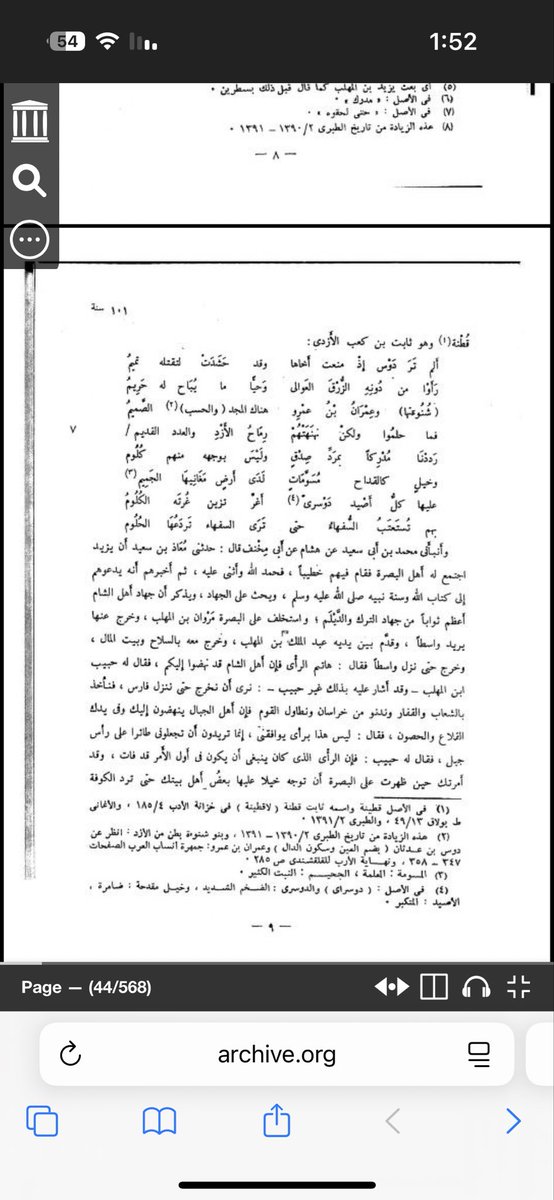 54
1:52
(٥) أى بعث يزيد بن المهلب كما قال قبل ذلك بسطرين ٠
(٦) فى الأصل : « مدرك » ٠
(٧) فى الأصل : « حتى لحقوه » ٠
(٨) هذه الزيادة من تاريخ الطبرى ١٣٩٠/٢ – ١٣٩١ ٠
— ٨ —
سنة ١٠١
قُطْنة(١) وهو ثابت بن كعب الأَزدى:
ألم تَرَ دَوْس إذْ منعت أخاها وقد حَشَدَتْ لتقتله تميمُ
رَأَوْا من دُونِهِ الزُّرْقَ العوالى وَحَيًّا ما يُبَاح له حَرِيمُ
(شُنُوءتها) وعِمْرَانُ بْنُ عمْرو هناك المجد (والحسب)(٢) الصَّمِيمُ
فما حلمُوا ولكنْ نَهْنَهَتْهُمْ رِمَاحُ الأَزْدِ والعدد القديم /
٧
رَدَدْنَا مُدْرِكاً بمَردِّ صِدْقٍ ولَيْسَ بوجهه منهم كُلُوم
وخيلٍ كالقداح مُسَوَّمَاتٍ لَدَى أرض مَغَانِيهَا الجَمِيم(٣)
عليها كلُّ أصْيد دَوْسرىّ(٤) أغَرّ تزين غُرتَه الكُلُومُ
بهم تُسْتَعتَبُ السُّفهاءُ حتى تَرَى السفهاء تَردَعُهَا الحُلُوم
وأنبأنى محمد بن أبى سعيد عن هشام عن أبى مِخْنف قال : حدثنى مُعاذ بن سعيد أن يزيد
اجتمع له أهل البصرة فقام فيهم خطيباً ، فحمد الله وأثنى عليه ، ثم أخبرهم أنه يدعوهم
إلى كتاب الله وسنة نبيه صلى الله عليه وسلم ، ويحث على الجهاد ، ويذكر أن جهاد أهل الشام
أعظم ثواباً من جهاد الترك والدَّيْلَم ؛ واستخلف على البصرة مَرْوان بن المهلب ، وخرج عنها
يريد واسطاً ، وقدَّم بين يديه عبد الملك بن المهلب ، وخرج معه بالسلاح وبيت المال ،
وخرج حتى نزل واسطاً فقال : هاتم الرأى فإن أهل الشام قد نهضوا إليكم ، فقال له حبيب
ابن المهلب – وقد أشار عليه بذلك غير حبيب – : نرى أن نخرج حتى ننزل فارس ، فنأخذ
بالشعاب والقفار وندنو من خراسان ونطاول القوم فإن أهل الجبال ينهضون إليك وفى يدك
القلاع والحصون ، فقال : ليس هذا برأى يوافقنى ، إنما تريدون أن تجعلونى طائرا على رأس
جبل ، فقال له حبيب : فإن الرأى الذى كان ينبغى أن يكون فى أول الأمر قد فات ، وقد
أمرتك حين ظهرت على البصرة أن توجه خيلا عليها بعضُ أهل بيتك حتى ترد الكوفة
(١) فى الأصل قطينة واسمه ثابت قطنة ( لاقطينة ) فى خزانة الأدب ١٨٥/٤ ، والأغانى
ط بولاق ٤٩/١٣ ، والطبرى ١٣٩١/٢ ٠
(٢) هذه الزيادة من تاريخ الطبرى ١٣٩٠/٢ – ١٣٩١ ، وبنو شنوءة بطن من الأزد : انظر عن
دوس بن عدثان ( بضم العين وسكون الدال ) وعمران بن عمرو : جمهرة أنساب العرب الصفحات
٣٤٧ – ٣٥٨ ، ونهاية الأرب للقلقشندى ص ٢٨٥ ٠
(٣) المسومة : المعلمة ، الجميم : النبت الكثير ٠
(٤) فى الأصل : ( دوسراى ) والدوسرى : الضخم الشديد ، وخيل مقدحة : ضامرة ،
الأصيد : المتكبر ٠
— ٩ —
Page — (44/568)
archive.org